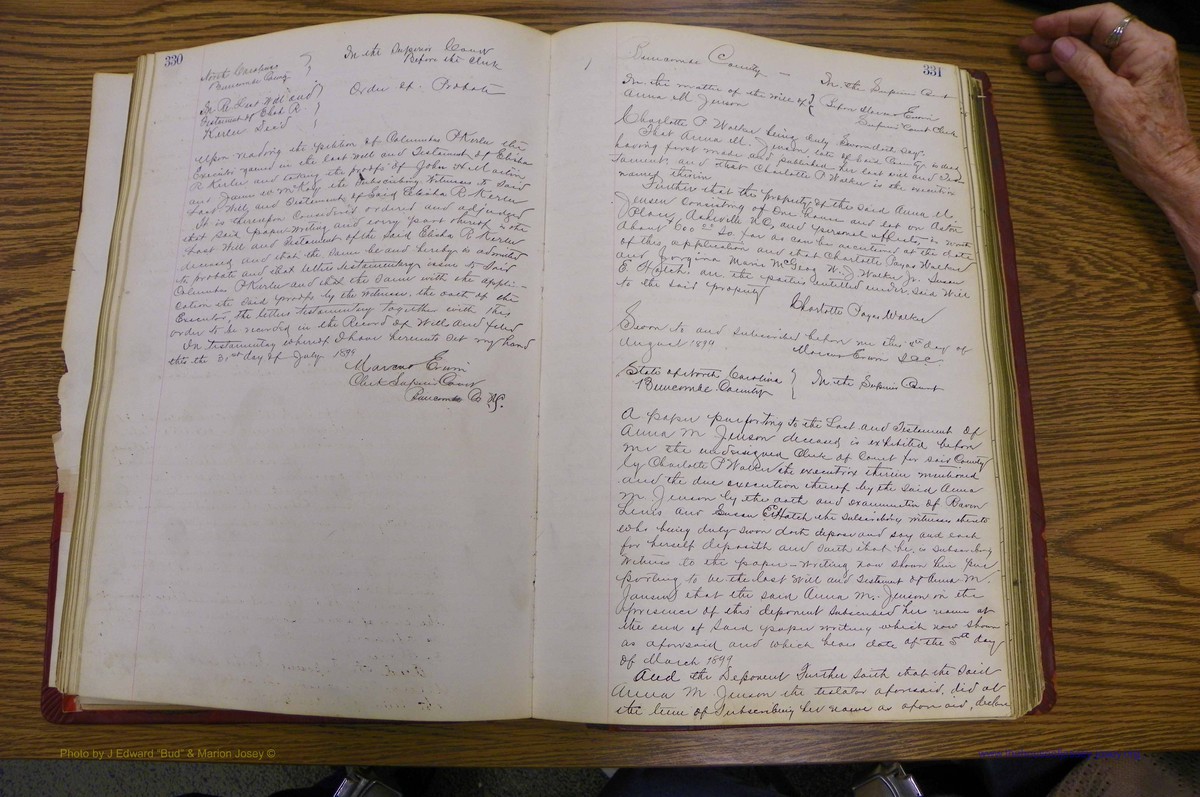 330
North Carolina
Buncombe County
In the Superior Court
Before the Clerk
In Re Last Will and
Testament of Elisha R
Kerlee Dead
Order of Probate
Upon reading the petition of Columbus P Kerlee the
Executor named in the Last Will and Testament of Elisha
R Kerlee and taking the proofs of John A Martin
and James W McKoy the Subscribing Witnesses to Said
Last Will and Testament of Said Elisha R Kerlee
It is thereupon Considered ordered and adjudged
that Said paper-Writing and every part thereof is the
Last Will and Testament of the Said Elisha R Kerlee
deceased and that the Same be and hereby is admitted
to probate and that letters testamentary issue to Said
Columbus P Kerlee and that the Same with the appli-
cation the Said proofs by the Witnesses, the oath of the
Executor, the letters testamentary together with this
order to be recorded in the Record of Wills and filed
In testimony whereof I have hereunto Set my hand
this the 31st day of July 1899
Marcus Erwin
Clerk Superior Court
Buncombe Co N.C.
331
Buncombe County
In the Superior Court
In the matter of the Will of
Anna M Jenson
Before Marcus Erwin
Superior Court Clerk
Charlotte P Walker being duly Sworn doth Say
That Anna M. Jenson late of Said County is dead
having first made and published her last will and Tes-
tament, and that Charlotte P Walker is the executrix
named therein
Further that the property of the said Anna M.
Jenson Consisting of One house and lot on Aston
Place, Asheville N.C, and personal effects, is worth
About 600 So far as can be ascertained at the date
of this application and that Charlotte Payas Walker
and Georgina Marie McGeay W. J. Walker Jr. Susan
E Hatch are the parties entitled under Said Will
to the said property
Charlotte Payas Walker
Sworn to and subscribed before me this 8th day of
August 1899
Marcus Erwin C.S.C.
State of North Carolina
Buncombe County
In the Superior Court
A paper purporting to the Last and Testament of
Anna M Jenson deceased is exhibited before
me the undersigned Clerk of Court for said County
by Charlotte P Walker the executrix therein mentioned
and the due execution thereof by the Said Anna
M. Jenson by the oath and examination of
Lewis and Susan E Hatch the Subscribing Witnesses thereto
who being duly Sworn doth depose and say and each
for herself deposith and Saith that he is Subscribing
Witness to the paper-Writing now shown her pur
porting to be the last Will and Testament of Anna M.
Jenson that the said Anna M. Jenson in the
presence of this deponent Subscribed her name at
the end of Said paper Writing which now Shown
as aforesaid and which bears date of the 5th day
of March 1899
And the Deponent Further Saith that the Said
Anna M Jenson the testator aforesaid, did at
the time of Subscribing her name as aforesaid, declare
Photo by J Edward "Bud" & Marion Josey ©